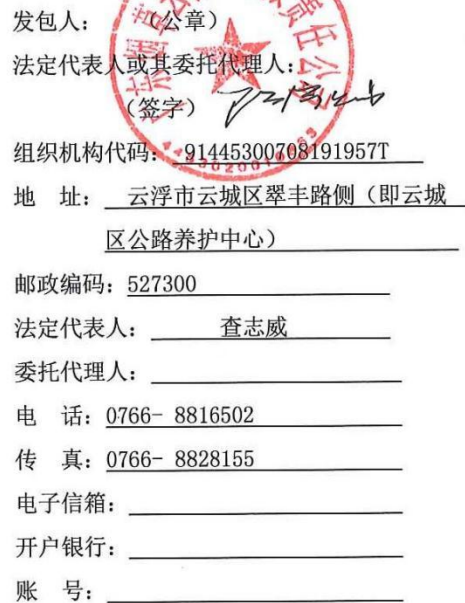 发包人： （公章）
法定代表人或其委托代理人：
（签字）
组织机构代码： 91445300708191957T
地 址： 云浮市云城区翠丰路侧（即云城
区公路养护中心）
邮政编码：527300
法定代表人： 查志威
委托代理人：
电 话：0766- 8816502
传 真：0766- 8828155
电子信箱：
开户银行：
账 号：